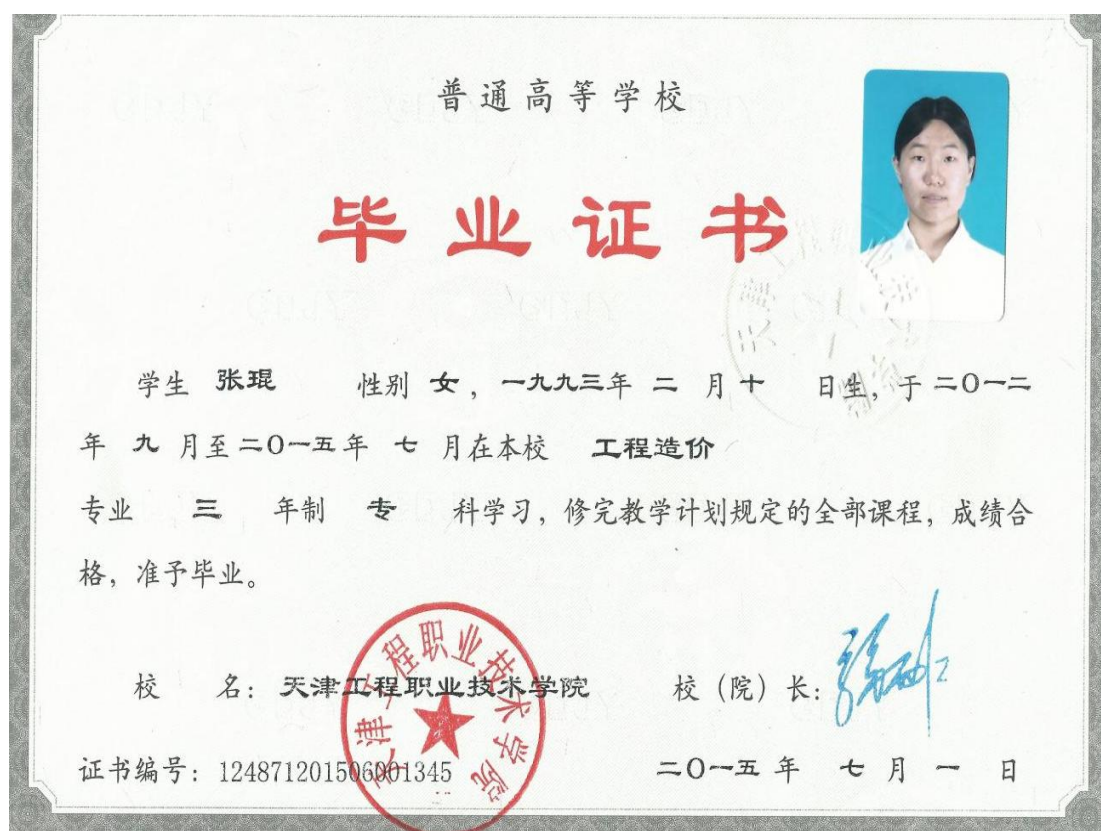 普通高等学校
毕业证书
学生 张琨 性别 女，一九九三年 二 月 十 日生，于二〇一二
年 九 月至二〇一五年 七 月在本校 工程造价
专业 三 年制 专 科学习，修完教学计划规定的全部课程，成绩合
格，准予毕业。
校 名：天津工程职业技术学院 校（院）长：
证书编号：124871201506001345 二〇一五年 七 月 一 日
天津工程职业技术学院